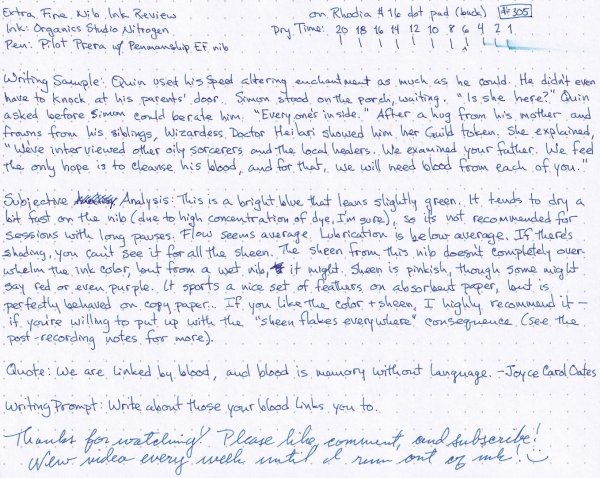 Extra Fine Nib Ink Review on Rhodia #16 dot pad (back) #305
Ink: Organics Studio Nitrogen Dry Time: 20 18 16 14 12 10 8 6 4 2 1
Pen: Pilot Prera w/ Penmanship EF nib
Writing Sample: Quin used his speed altering enchantment as much as he could. He didn't even
have to knock at his parents' door. Simon stood on the porch, waiting. "Is she here?" Quin
asked before Simon could berate him. "Everyone's inside." After a hug from his mother and
frowns from his siblings, Wizardess Doctor Heilari showed him her Guild token. She explained,
"We've interviewed other oily sorcerers and the local healers. We examined your father. We feel
the only hope is to cleanse his blood, and for that, we will need blood from each of you."
Subjective Analysis: This is a bright blue that leans slightly green. It tends to dry a
bit fast on the nib (due to high concentration of dye, I'm sure), so it's not recommended for
sessions with long pauses. Flow seems average. Lubrication is below average. If there's
shading, you can't see it for all the sheen. The sheen from this nib doesn't completely over-
whelm the ink color, but from a wet nib, it might. Sheen is pinkish, though some might
say red or even purple. It sports a nice set of feathers on absorbent paper, but is
perfectly behaved on copy paper. If you like the color + sheen, I highly recommend it —
if you're willing to put up with the "sheen flakes everywhere" consequence (see the
post-recording notes for more).
Quote: We are linked by blood, and blood is memory without language. -Joyce Carol Oates
Writing Prompt: Write about those your blood links you to.
Thanks for watching! Please like, comment, and subscribe!
New video every week until I run out of ink! :)